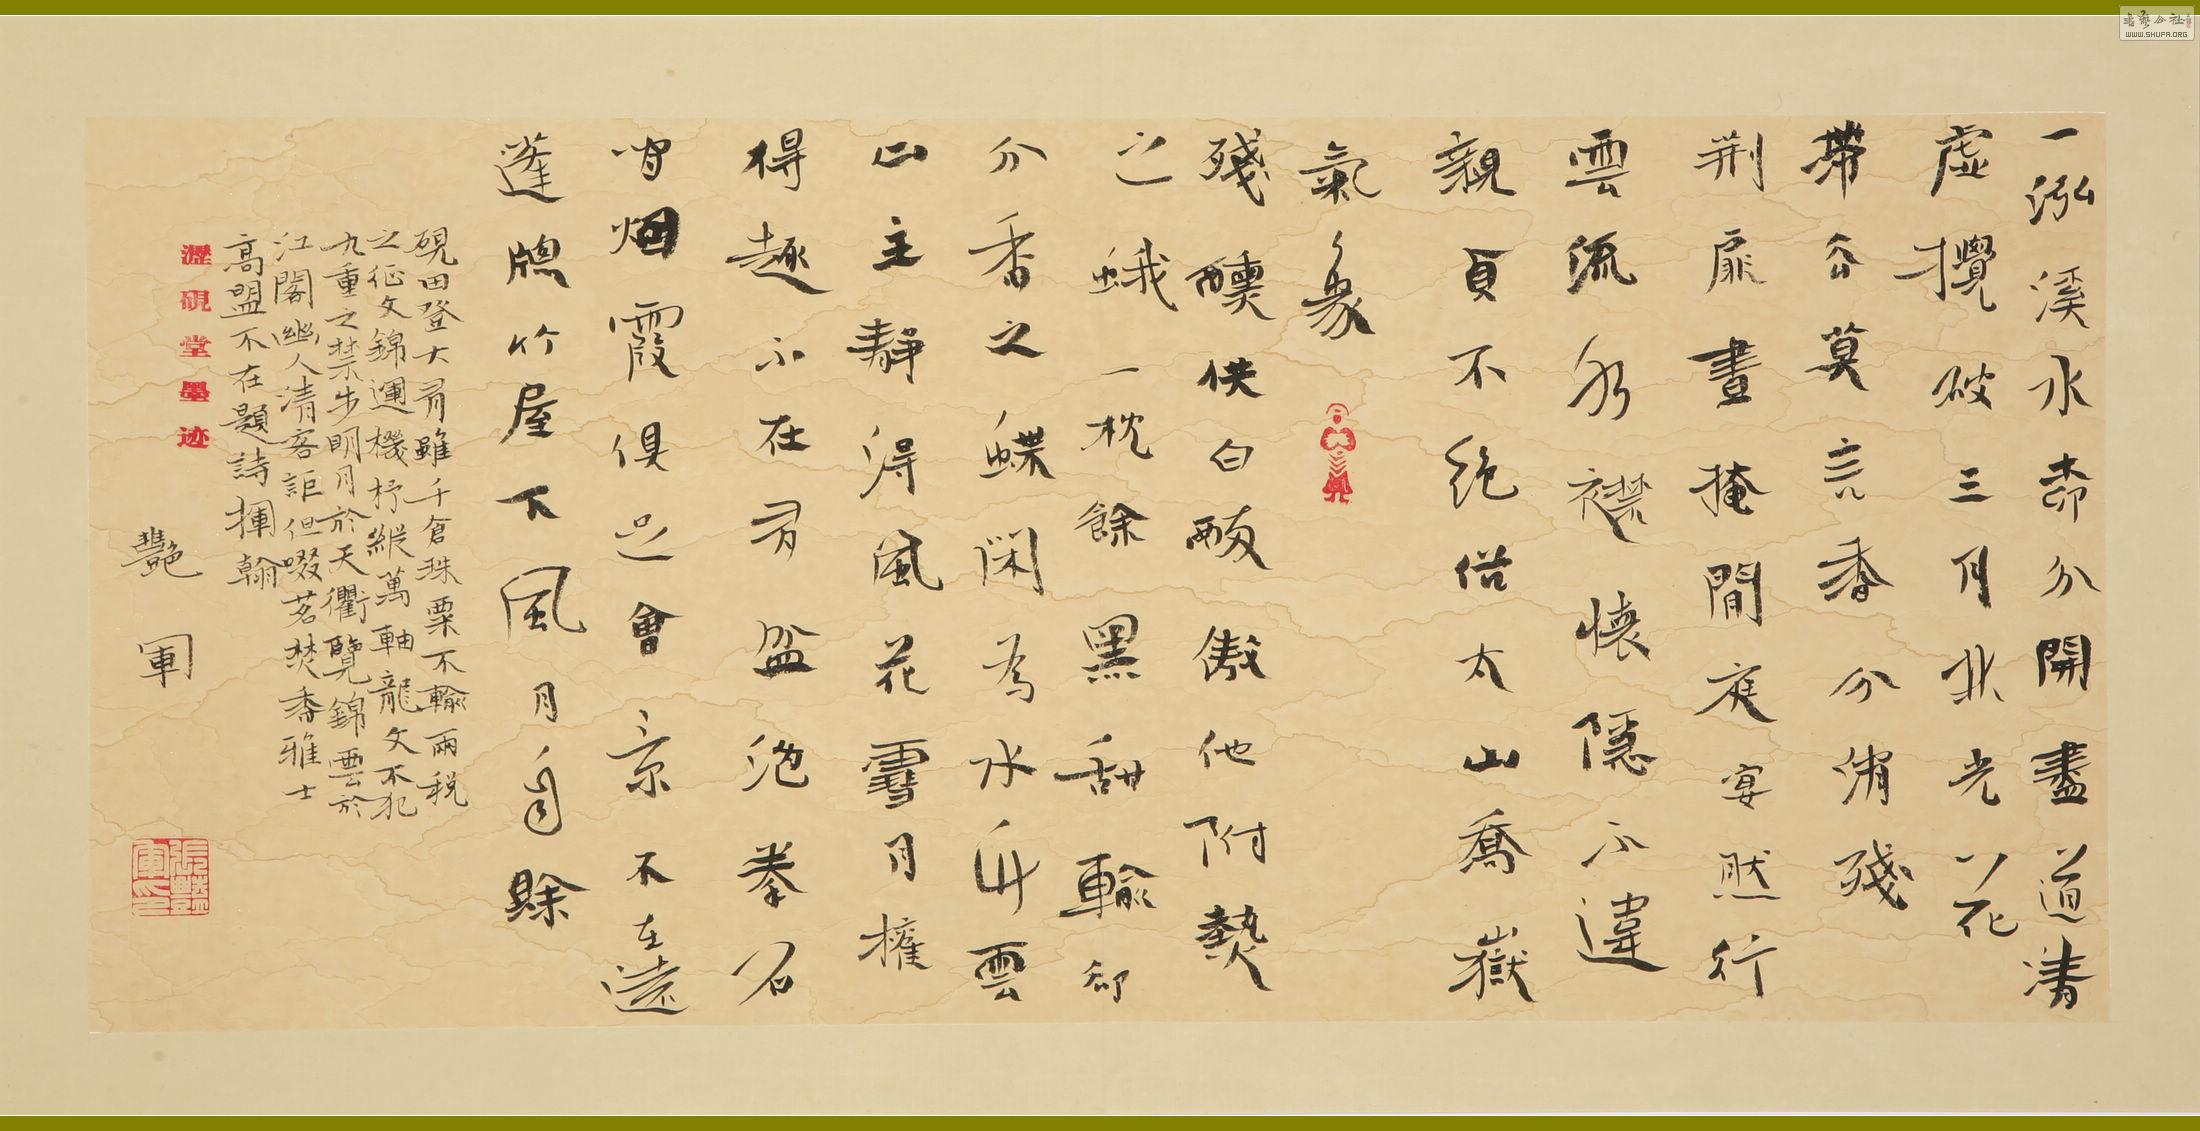 一泓溪水柰分開盡道清
虛攪破三月北光以花
帶谷莫言香分消殘
荆扉晝掩閒庭宴然行
雲流水襟懷隱不違
親貞不絕俗太山喬嶽
氣象
殘醺供白醉傲他附熱
之蛾一枕餘黑甜輸卻
分香之蝶閑為水竹雲
山主靜得風花雪月權
得趣不在多盆池拳石
間烟霞俱足會景不在遠
蓬牕竹屋下風月自賒
硯田登大有雖千倉珠粟不輸兩稅
之征文錦運機杼縱萬軸龍文不犯
九重之禁步明月於天衢覽錦雲於
江閣幽人清客詎但啜茗焚香雅士
高盟不在題詩揮翰
艷軍
瀣硯堂墨迹
張艷軍印
WWW.SHUFA.ORG